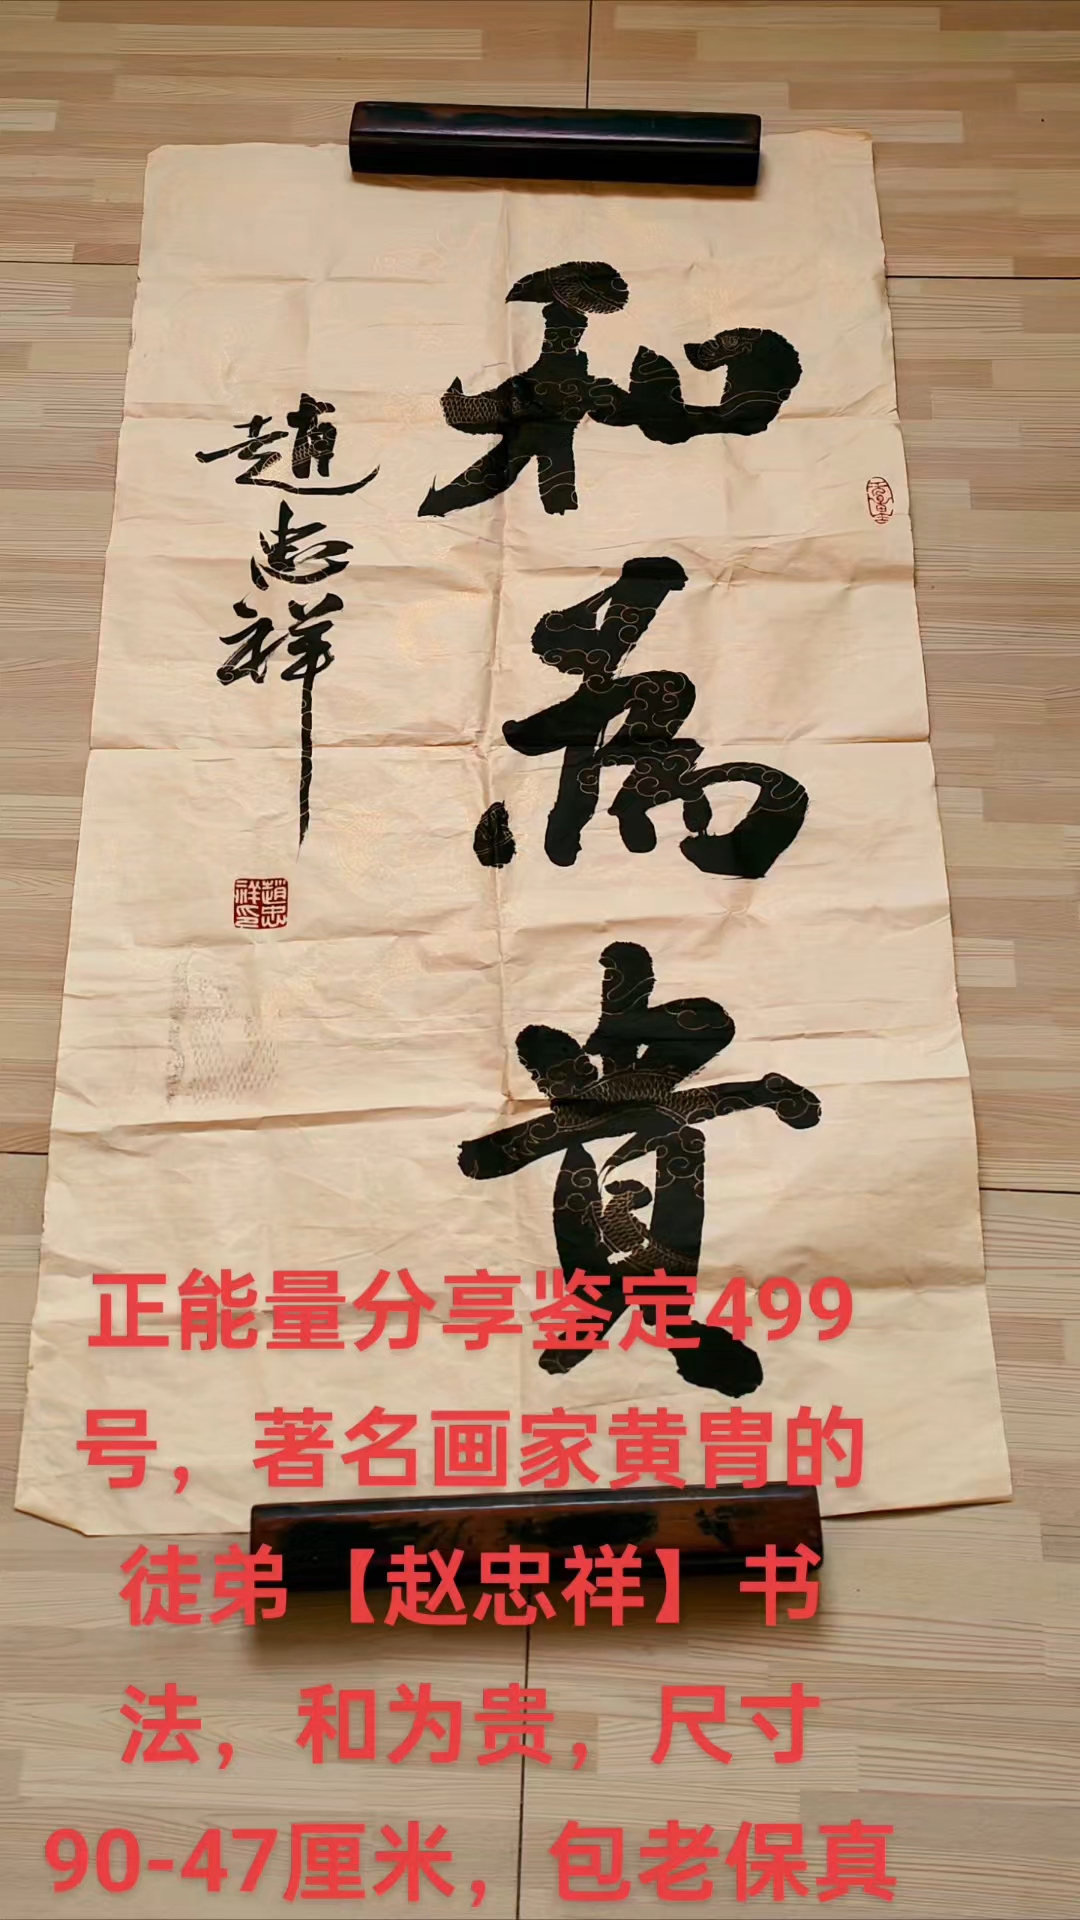 和為貴
趙忠祥
趙忠祥印
正能量分享鉴定499
号，著名画家黄胄的
徒弟【赵忠祥】书
法，和为贵，尺寸
90-47厘米，包老保真